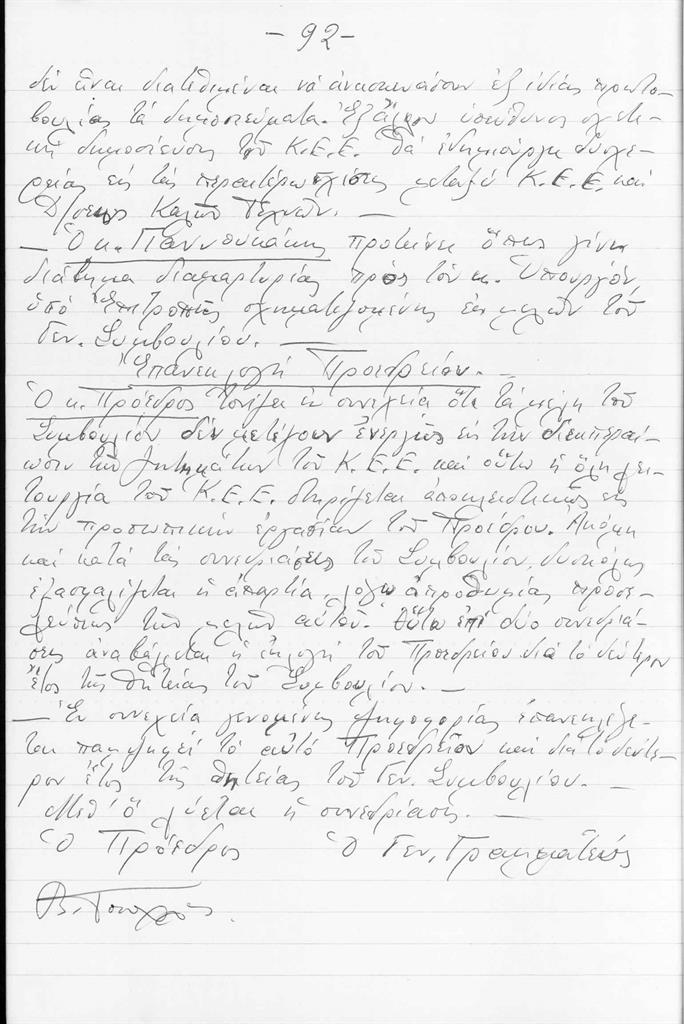 - 92 -
δέν εἶναι διατεθιμέναι νά ἀνασκευάσουν ἐξ ἰδίας πρωτο-
βουλίας τά δημοσιεύματα. Ἐξ ἄλλου ὑπεύθυνος σχετι-
κή δημοσίευσις τοῦ Κ.Ε.Ε. θά ἐδημιούργει δυσχε-
ρείας εἰς τάς περαιτέρω σχέσεις μεταξύ Κ.Ε.Ε. καί
Δ/σεως Καλῶν Τεχνῶν. —
— Ὁ κ. Γιαννουκάκης προτείνει ὅπως γίνει
διάβημα διαμαρτυρίας πρός τόν κ. Ὑπουργόν,
ὑπό Ἐπιτροπῆς σχηματιζομένης ἐκ μελῶν τοῦ
Γεν. Συμβουλίου. —
Ἐπανεκλογή Προεδρείου. —
Ὁ κ. Πρόεδρος τονίζει ἐν συνεχείᾳ ὅτι τά μέλη τοῦ
Συμβουλίου δέν μετέχουν ἐνεργῶς εἰς τήν διεκπεραί-
ωσιν τῶν ζητημάτων τοῦ Κ.Ε.Ε. καί οὕτω ἡ ὅλη λει-
τουργία τοῦ Κ.Ε.Ε. στηρίζεται ἀποκλειστικῶς εἰς
τήν προσωπικήν ἐργασίαν τοῦ Προέδρου. Ἀκόμη
καί κατά τάς συνεδριάσεις τοῦ Συμβουλίου, δυσκόλως
ἐξασφαλίζεται ἡ ἀπαρτία, λόγῳ ἀπροθυμίας προσε-
λεύσεως τῶν μελῶν αὐτοῦ. Οὕτω ἐπί δύο συνεδριά-
σεις ἀναβάλλεται ἡ ἐκλογή τοῦ Προεδρείου διά τό δεύτερον
ἔτος τῆς θητείας τοῦ Συμβουλίου. —
— Ἐν συνεχείᾳ γενομένης ψηφοφορίας ἐπανεκλέγε-
ται παμψηφεί τό αὐτό Προεδρεῖον καί διά τό δεύτε-
ρον ἔτος τῆς θητείας τοῦ Γεν. Συμβουλίου. —
Μεθ' ὅ λύεται ἡ συνεδρίασις. —
Ὁ Πρόεδρος Ὁ Γεν. Γραμματεύς